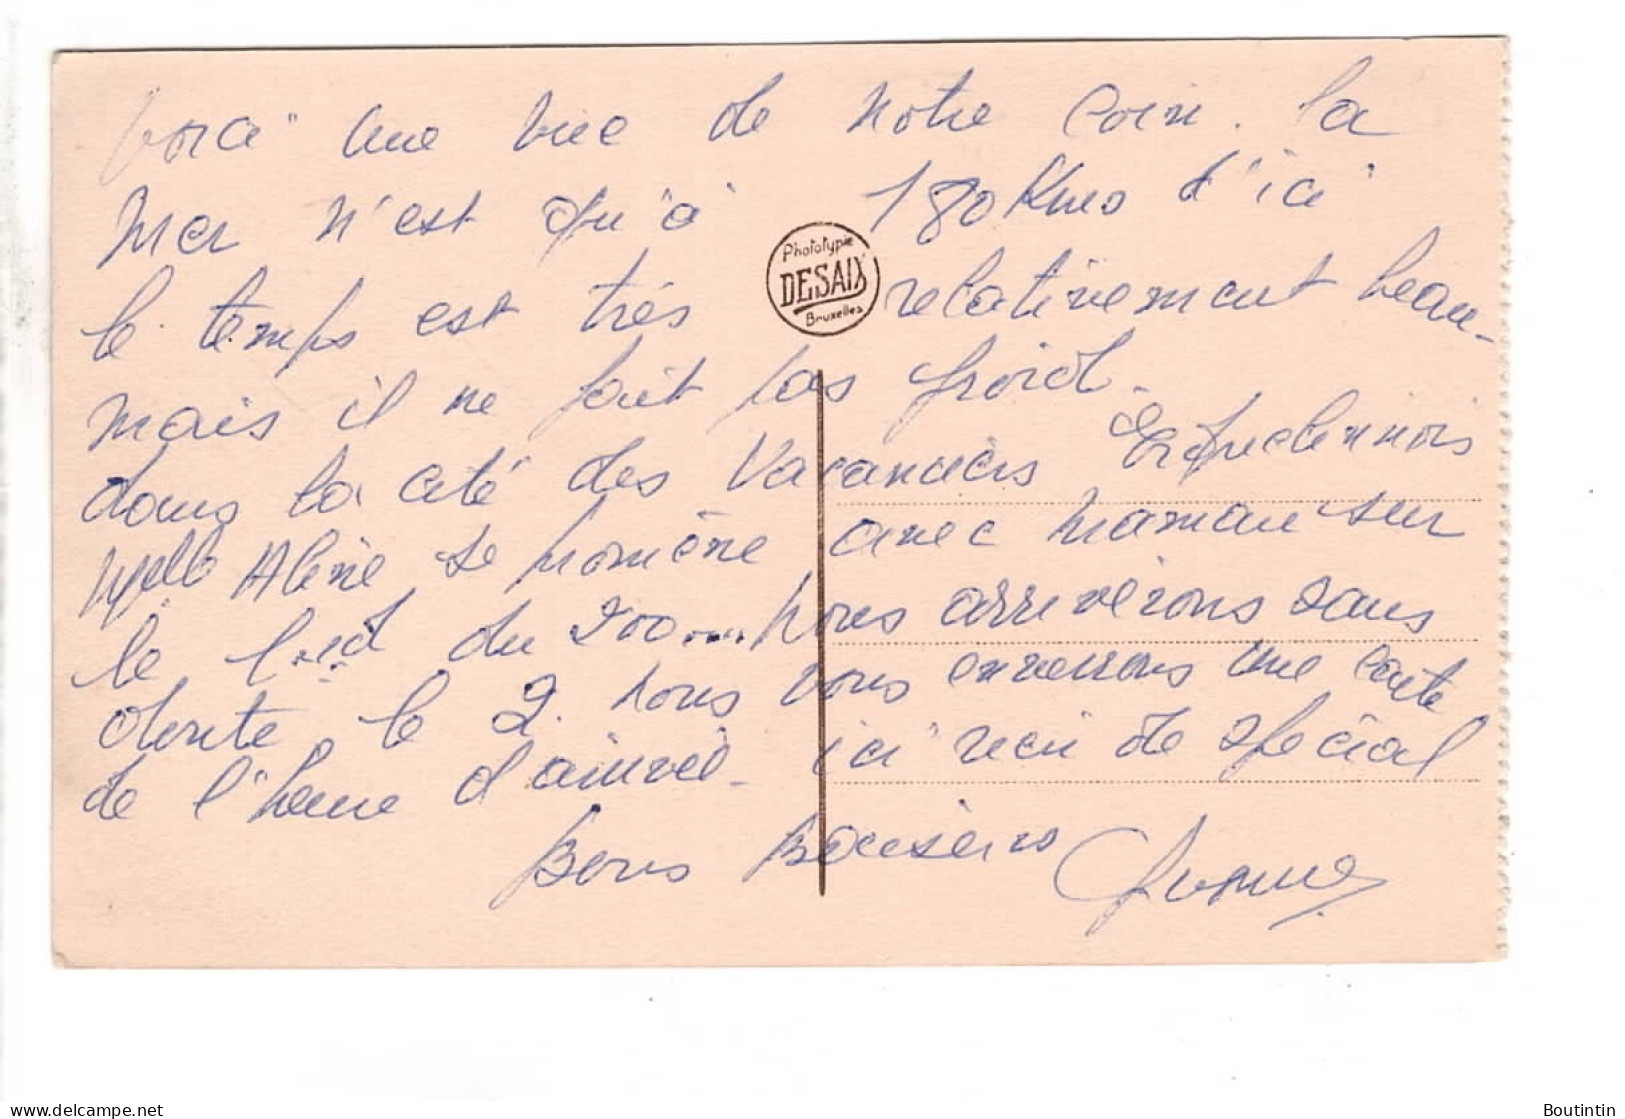 Voici une vue de notre coin. la
mer n'est qu'à 180 Kms d'ici
le temps est très relativement beau -
mais il ne fait pas froid.
dans la cité des Vacanciers Erquelinnois
Melle Aline se promène avec maman sur
le bord du 200.... nous arriverons sans
doute le 2. nous vous enverrons une carte
de l'heure d'arrivée - ici rien de spécial
Bons Baisers
Phototypie
DESAIX
Bruxelles
Boutintin